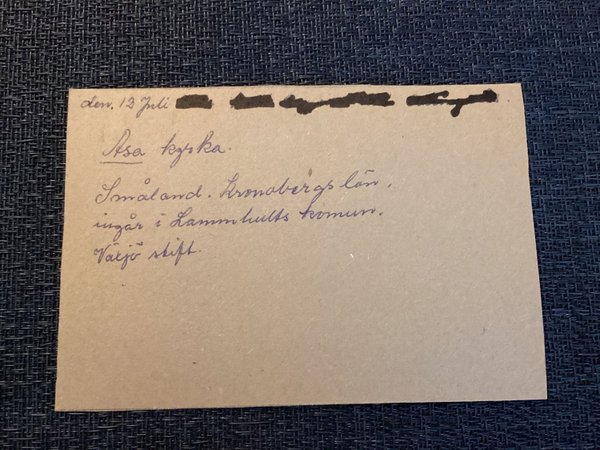 den. 12 Juli
Asa kyrka.
Småland. Kronobergs län,
ingår i Lammhults komun.
Växjö stift.